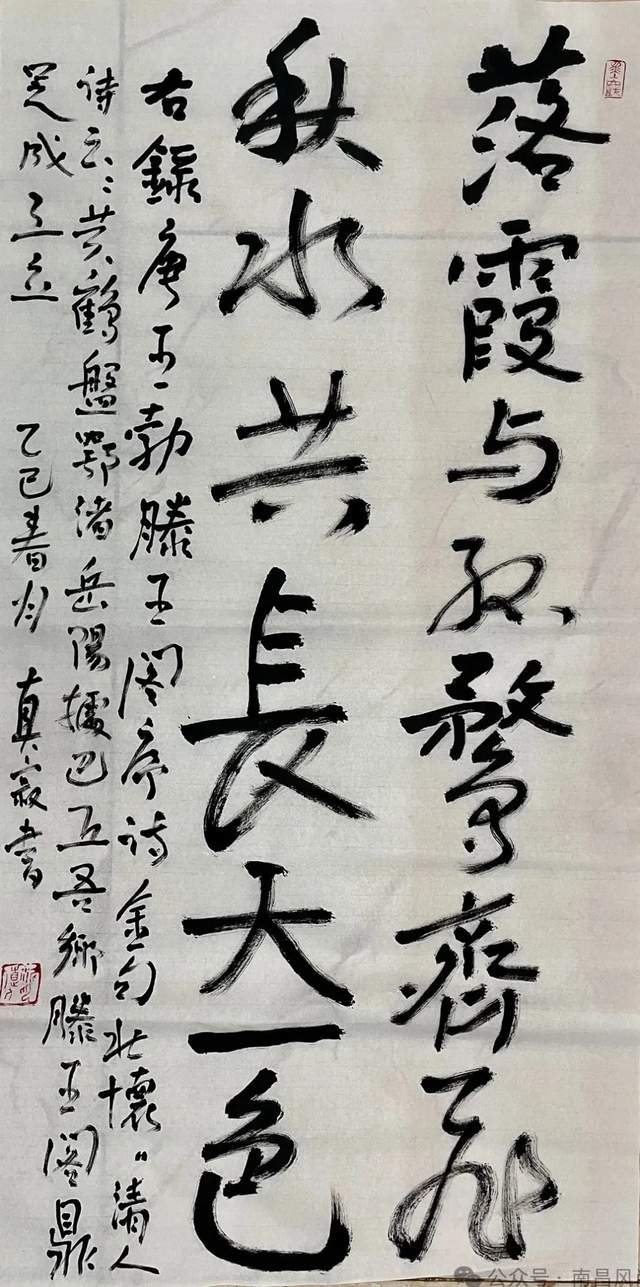 落霞与孤鹜齊飛
秋水共長天一色
右錄唐王勃滕王閣序詩金句壮懷〻清人
詩云〻黄鶴盤鄂渚岳陽據巴丘吾鄉滕王閣鼎
足成三
乙巳春月 真 書
公众号·南昌风